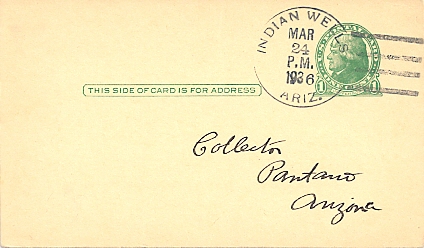 INDIAN WELLS
MAR
24
P.M.
1936
ARIZ.
THIS SIDE OF CARD IS FOR ADDRESS
1 1
Collector
Pantano
Arizona